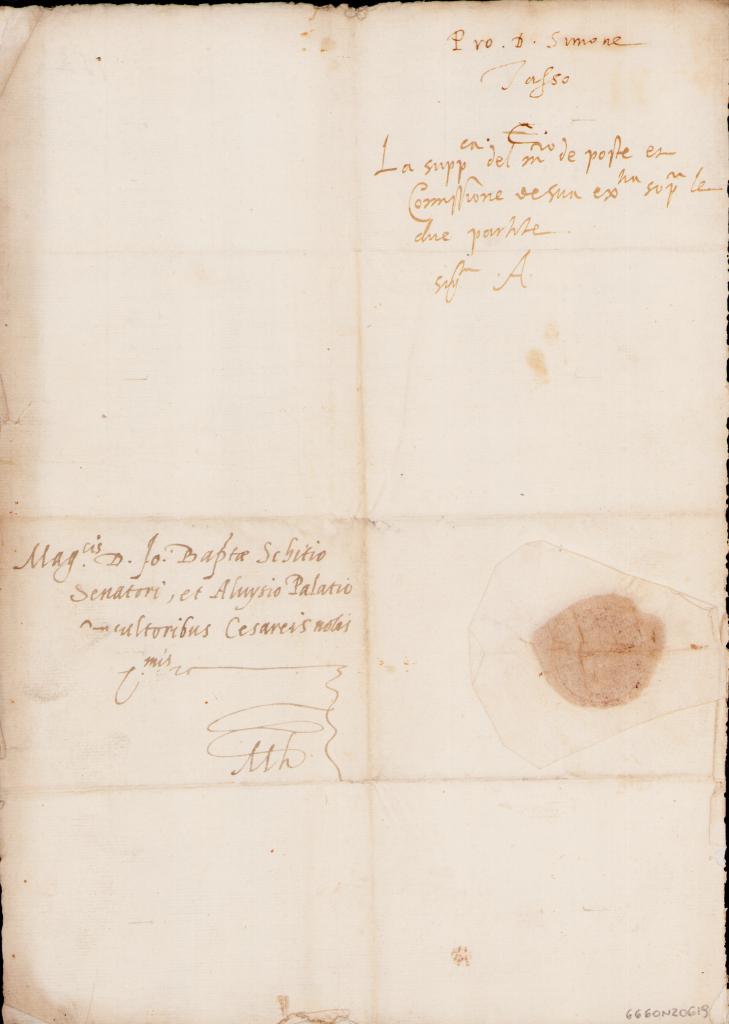 Pro. D. Simone
Tasso
La supp.ca del m.ro de poste et
Comissione de sua ex.tia sop.a le
due partite
A.
Mag.cis D. Jo: Baptæ Schitio
Senatori, et Aluysio Palatio
Cesareis nobis
Mh
6660N20619